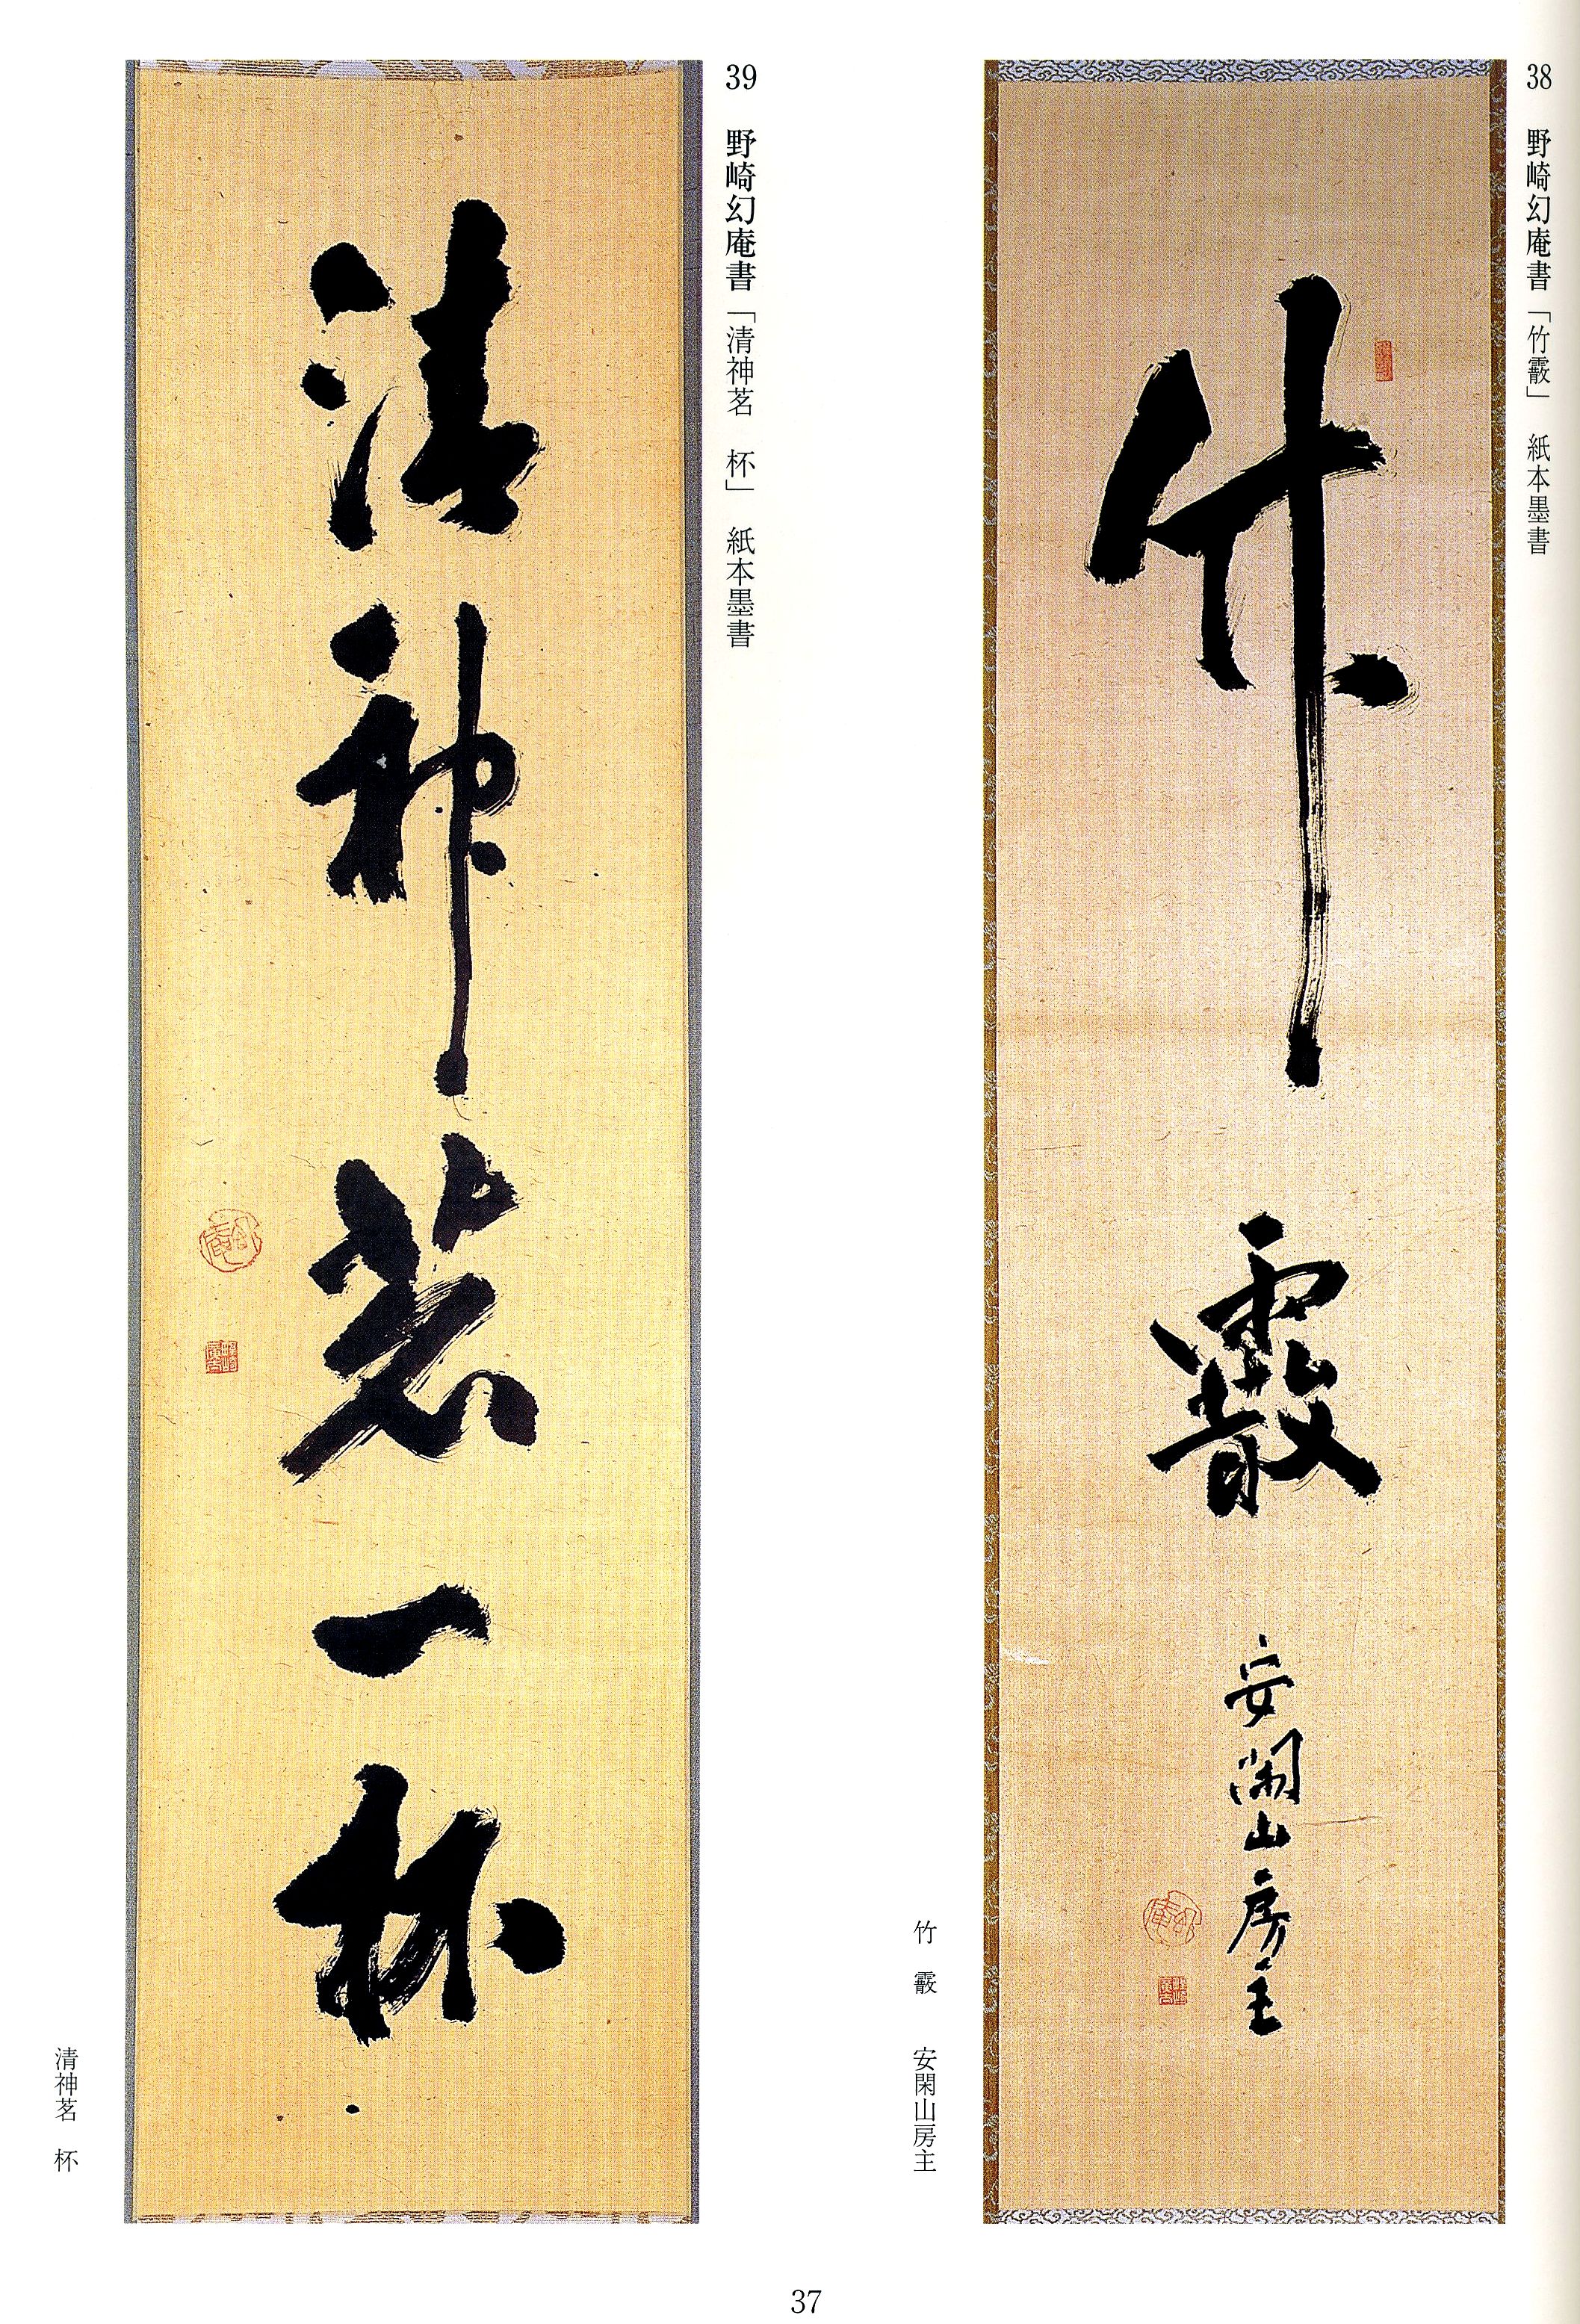 38 野崎幻庵書「竹霰」 紙本墨書
竹霰
安閑山房主
幻庵
竹 霰 安閑山房主
39 野崎幻庵書「清神茗 杯」 紙本墨書
清神茗一杯
幻庵
清神茗 杯
37